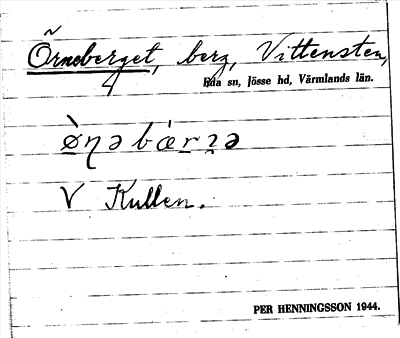 Örneberget, berg, Vittensten,
Eda sn, Jösse hd, Värmlands län.
V Kullen.
PER HENNINGSSON 1944.